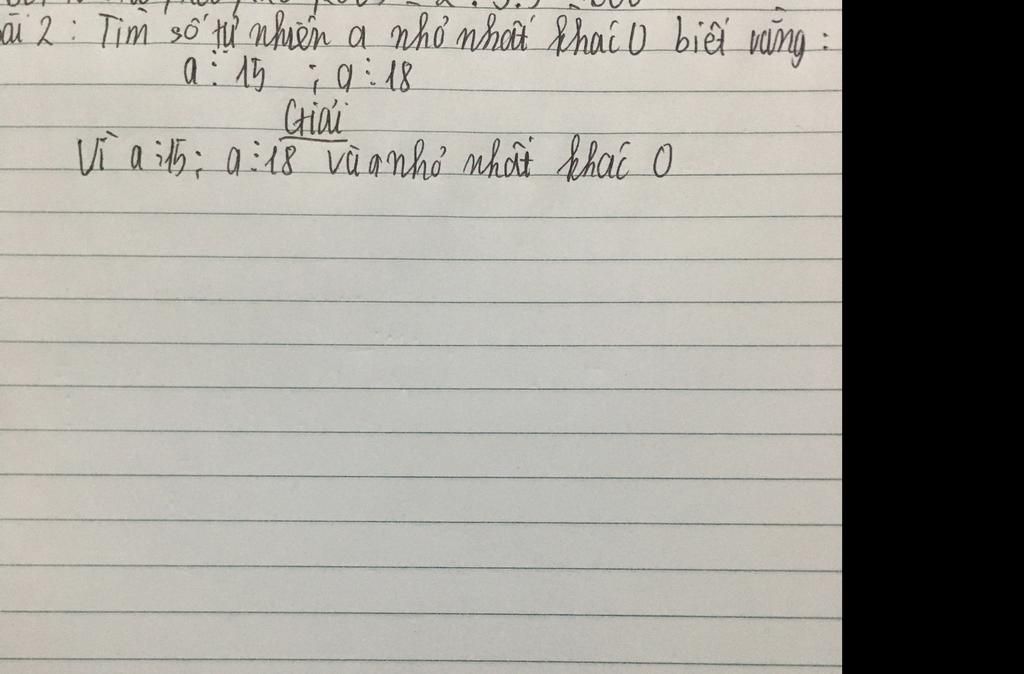 ài 2 : Tìm số tự nhiên a nhỏ nhất khác 0 biết rằng :
a ⋮ 15 ; a ⋮ 18
Giải
Vì a ⋮ 15 ; a ⋮ 18 và a nhỏ nhất khác 0